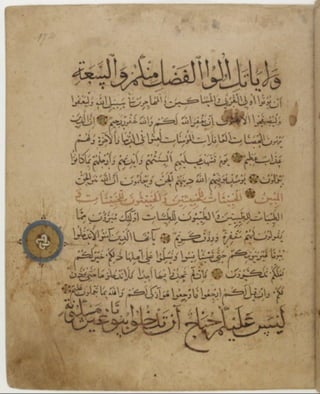 ولا يأتل أولوا الفضل منكم والسعة
أن يؤتوا أولي القربى والمساكين والمهاجرين في سبيل الله وليعفوا
وليصفحوا ألا تحبون أن يغفر الله لكم والله غفور رحيم إن الذين
يرمون المحصنات الغافلات المؤمنات لعنوا في الدنيا والآخرة ولهم
عذاب عظيم يوم تشهد عليهم ألسنتهم وأيديهم وأرجلهم بما كانوا
يعملون يومئذ يوفيهم الله دينهم الحق ويعلمون أن الله هو الحق
المبين الخبيثات للخبيثين والخبيثون للخبيثات و
الطيبات للطيبين والطيبون للطيبات أولئك مبرءون مما
يقولون لهم مغفرة ورزق كريم يا أيها الذين آمنوا لا تدخلوا
بيوتا غير بيوتكم حتى تستأنسوا وتسلموا على أهلها ذلكم خير لكم
لعلكم تذكرون فإن لم تجدوا فيها أحدا فلا تدخلوها حتى يؤذن
لكم وإن قيل لكم ارجعوا فارجعوا هو أزكى لكم والله بما تعملون عليم
ليس عليكم جناح أن تدخلوا بيوتا غير مسكونة